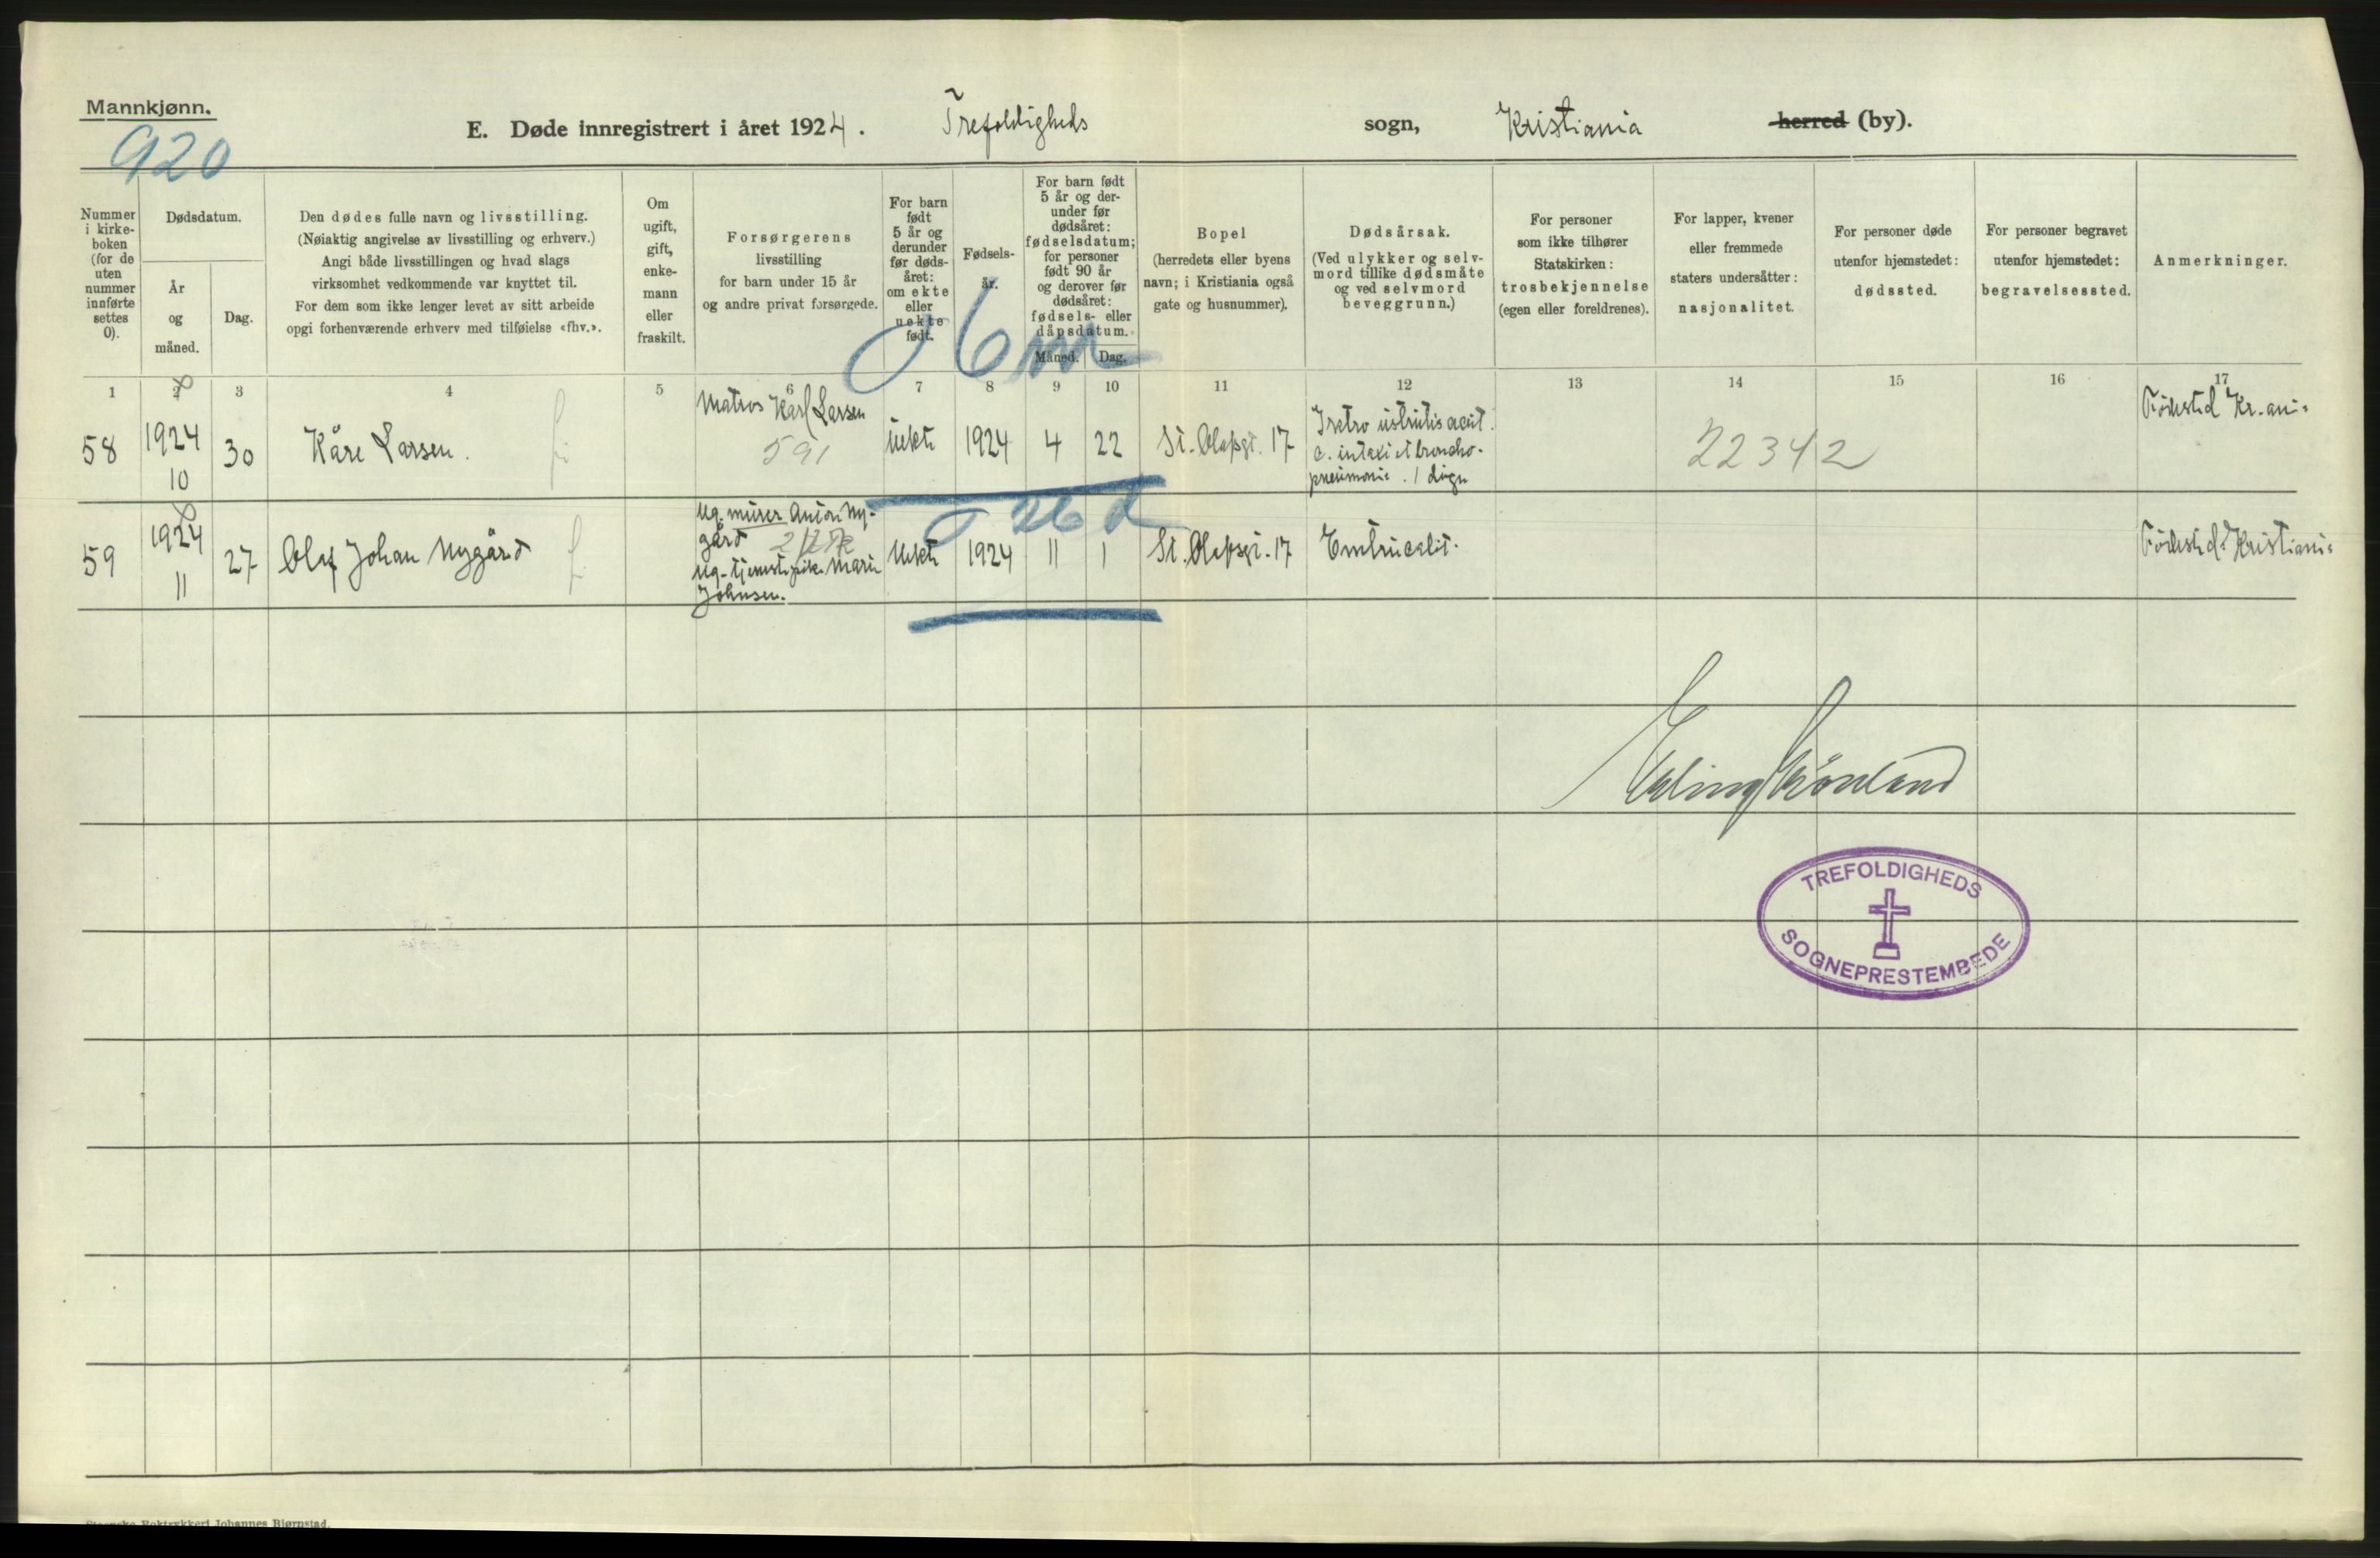 Mannkjønn.
920
E. Døde innregistrert i året 1924. Trefoldigheds sogn, Kristiania herred (by).
Nummer
i kirke-
boken
(for de
uten
nummer
innførte
settes
0).
Dødsdatum.
År
og
måned.
Dag.
Den dødes fulle navn og livsstilling.
(Nøiaktig angivelse av livsstilling og erhverv.)
Angi både livsstillingen og hvad slags
virksomhet vedkommende var knyttet til.
For dem som ikke lenger levet av sitt arbeide
opgi forhenværende erhverv med tilføielse «fhv.».
Om
ugift,
gift,
enke-
mann
eller
fraskilt.
Forsørgerens
livsstilling
for barn under 15 år
og andre privat forsørgede.
For barn
født
5 år og
derunder
før døds-
året:
om ekte
eller
uekte
født.
Fødsels-
år.
For barn født
5 år og der-
under før
dødsåret:
fødselsdatum;
for personer
født 90 år
og derover før
dødsåret:
fødsels- eller
dåpsdatum.
Måned. Dag.
Bopel
(herredets eller byens
navn; i Kristiania også
gate og husnummer).
Dødsårsak.
(Ved ulykker og selv-
mord tillike dødsmåte
og ved selvmord
beveggrunn.)
For personer
som ikke tilhører
Statskirken:
trosbekjennelse
(egen eller foreldrenes).
For lapper, kvener
eller fremmede
staters undersåtter:
nasjonalitet.
For personer døde
utenfor hjemstedet:
dødssted.
For personer begravet
utenfor hjemstedet:
begravelsessted.
Anmerkninger.
6 m
1 2 3 4 5 6 7 8 9 10 11 12 13 14 15 16 17
58
1924
10
30
Kåre Larsen.
Matros Karl Larsen
591
Uekte
1924
4
22
St. Olafsgt. 17
pneumonie. 1 døgn
22342
Fødested Kr.ania
26 d
59
1924
11
27
Olaf Johan Nygård
Ug. murer Anton Ny-
gård
Ug. tjenestepike Marie
Johnsen.
Uekte
1924
11
1
St. Olafsgt. 17
Fødested: Kristiania
Erling Grønland
TREFOLDIGHEDS
SOGNEPRESTEMBEDE
Steenske Boktrykkeri Johannes Bjørnstad.